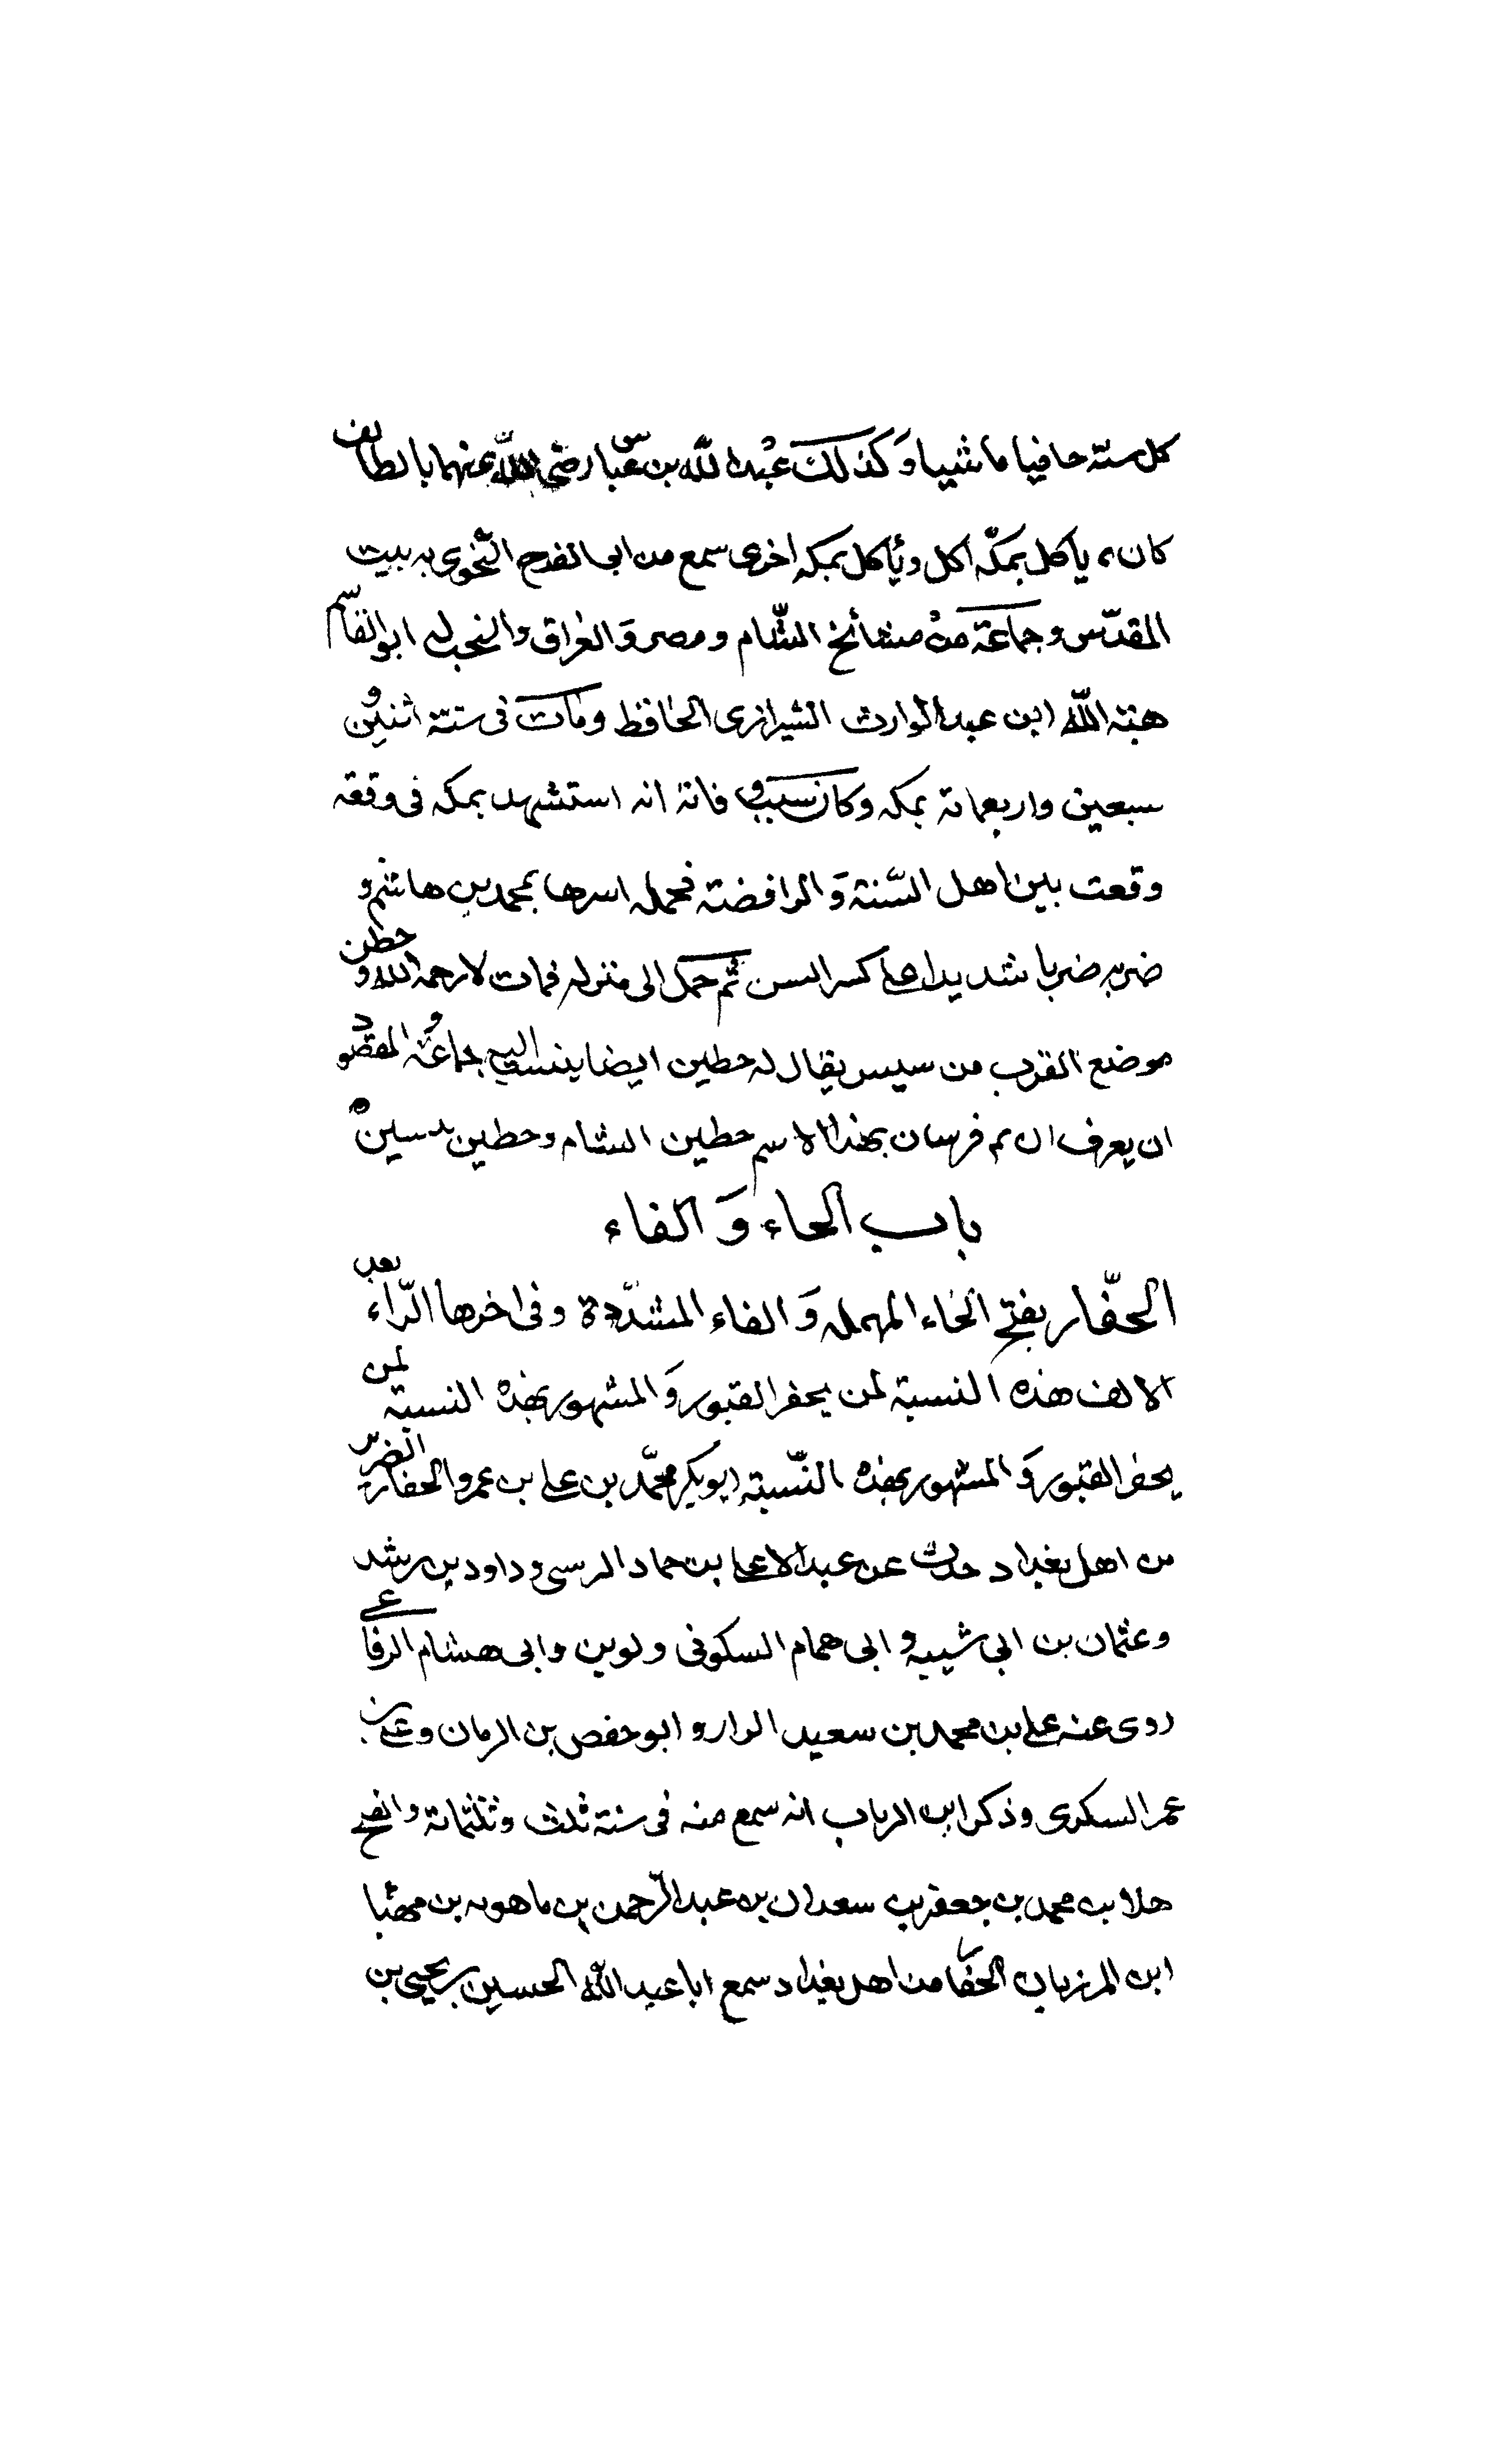 كل سنة حافيا ماشيا وَكذلكَ عبْد الله بن عبّاس رضى الله عنهما بالطائف
كان يأكل بمكّه اكل ويأكل بمكه اخرى سمع من ابى الفرح النّحوى به ببيت
المقدّس وجماعَة منْ مشائخ الشّام ومصر وَالعراق والنحب له ابو القاسم
هبة الله ابن عبد الوارث الشيرازى الحافظ وماتَ فى سنة اثنين و
سبعين واربعمائة بمكه وكان سبب وفاته انه استشهد بمكه فى وقعه
وقعت بين اهل السّنة وَالرافضة فحمله اسرها بمحمد بن هاشم و
ضربه ضربا شديدا على كسر السن ثم حمل الى منزله فمات لا رحمه الله و حطين
موضع القرب من سيس يقال له حطين ايضا ينسب اليه جماعة و المقصود
ان يعرف ان م فرسان بهذا الاسم حطين الشام وحطين
باب الحاء وَالفاء
الحفّار بفتح الحاء المهمله وَالفاء المشدّدة وفى اخرها الرّاء بعد
الالف هذه النسبة لمن يحفر القبور وَالمشهور بهذه النسبة لمن
يحفر القبور وَالمشهور بهذه النّسبة ابو بكر محمّد بن على بن عمرو الحفار الضرير
من اهل بغداد حدث عن عبد الاعلى بن حماد الرسى وداود بن رشد
وعثمان بن ابى شيبه و ابى همام السكونى ولوين وابى هشام الرفاعى
روى عنه على بن محمد بن سعيد الرار و ابو حفص بن الرمان وعلى بن
عمر السكرى وذكر ابن الرباب انه سمع منه فى سنة ثلث وثلثمائة و الفتح
هلا بن محمد بن جعفر بن سعدان بن عبد الرّحمن بن ماهويه بن مهيا
ابن المرزبان الحفار من اهل بغداد سمع ابا عبد الله الحسين بن يحيى بن